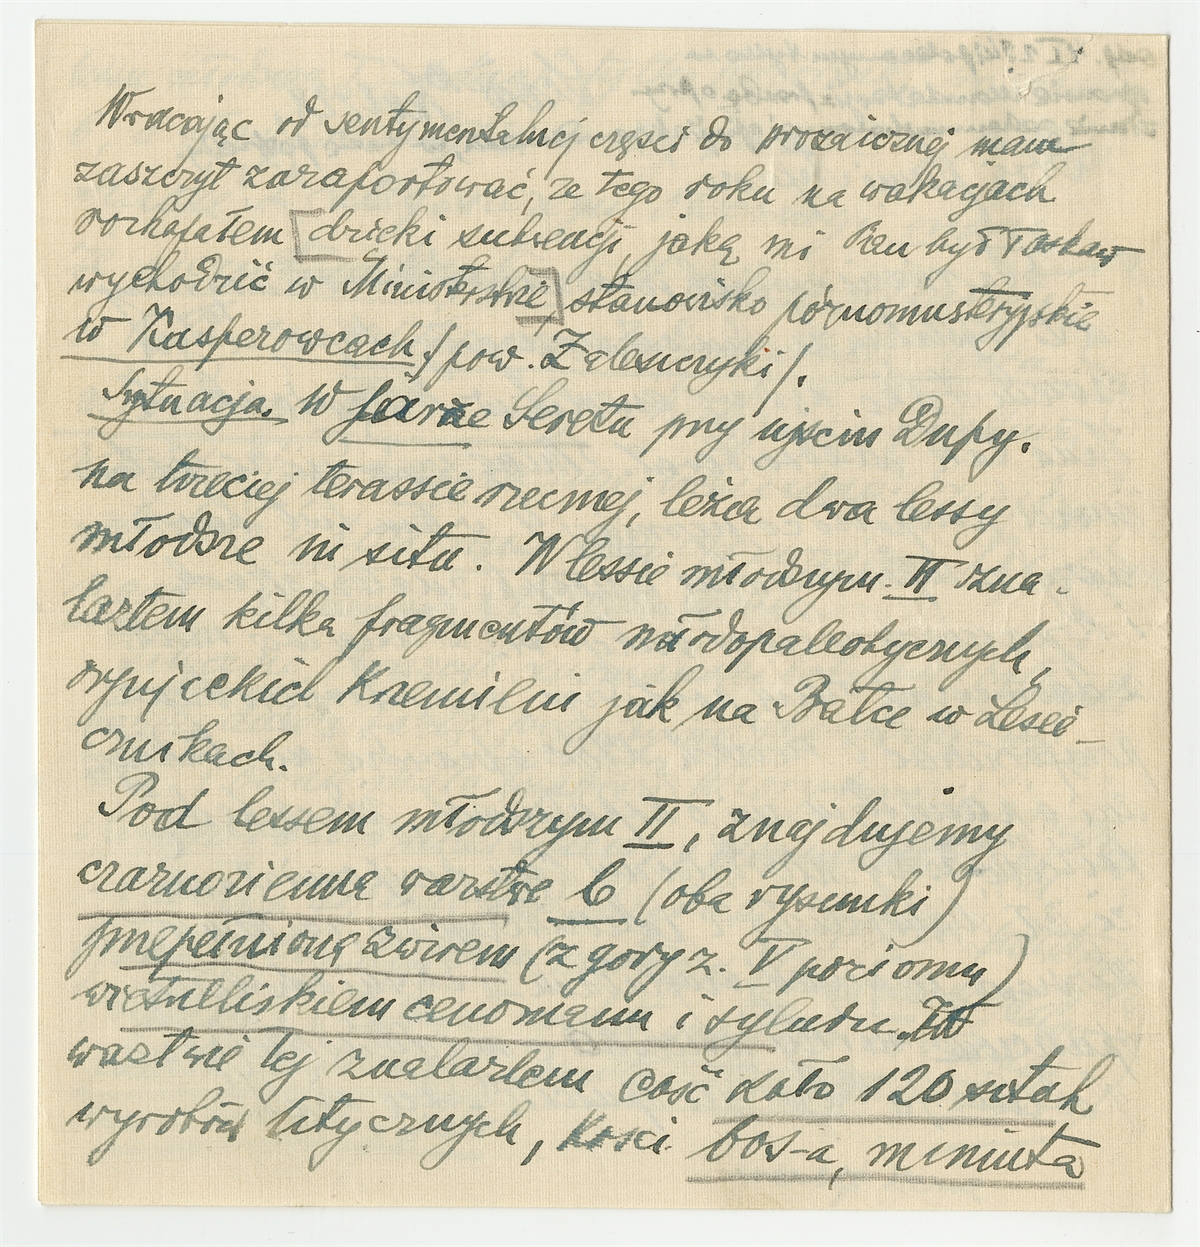 Wracając od sentymentalnej części do prozaicznej mam
zaszczyt zaraportować, że tego roku na wakacjach
rozkopałem [dzięki subwencji, jaką mi Pan był łaskaw
wychodzić w Ministerstwie,] stanowisko późnomusteryjskie
w Kasperowcach / pow. Zaleszczyki /.
Sytuacja. W jarze Seretu przy ujściu Dupy.
na trzeciej terassie rzecznej, leżą dwa lessy
młodsze in situ. W lessie młodszym II zna-
lazłem kilka fragmentów młodopaleotycznych,
krzemieni jak na Bałce w Lesie-
cznikach.
Pod lessem młodszym II, znajdujemy
czarnoziemną warstwę b (oba rysunki)
przepełnioną żwirem (z góry z. V poziomu)
cenomanu i syluru. W
warstwie tej znalazłem coś koło 120 sztuk
wyrobów litycznych, kości bos-a, mamuta